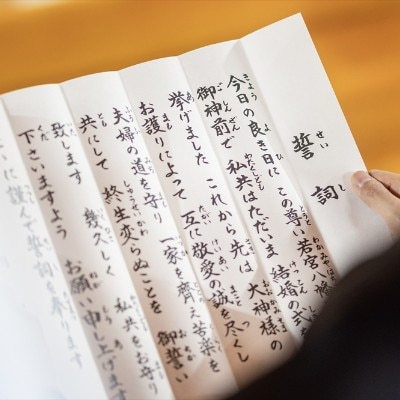 誓詞
今日の良き日に この尊い若宮八幡
御神前で 私共はただいま 結婚の式
挙げました これから先は 大神様の
お護りによって 互に敬愛の誠を尽くし
夫婦の道を守り 一家を齊え苦楽を
共にして 終生変らぬことを 御誓い
致します 幾久しく 私共をお守り
下さいますよう お願い申し上げます
に謹んで 誓詞を奉ります